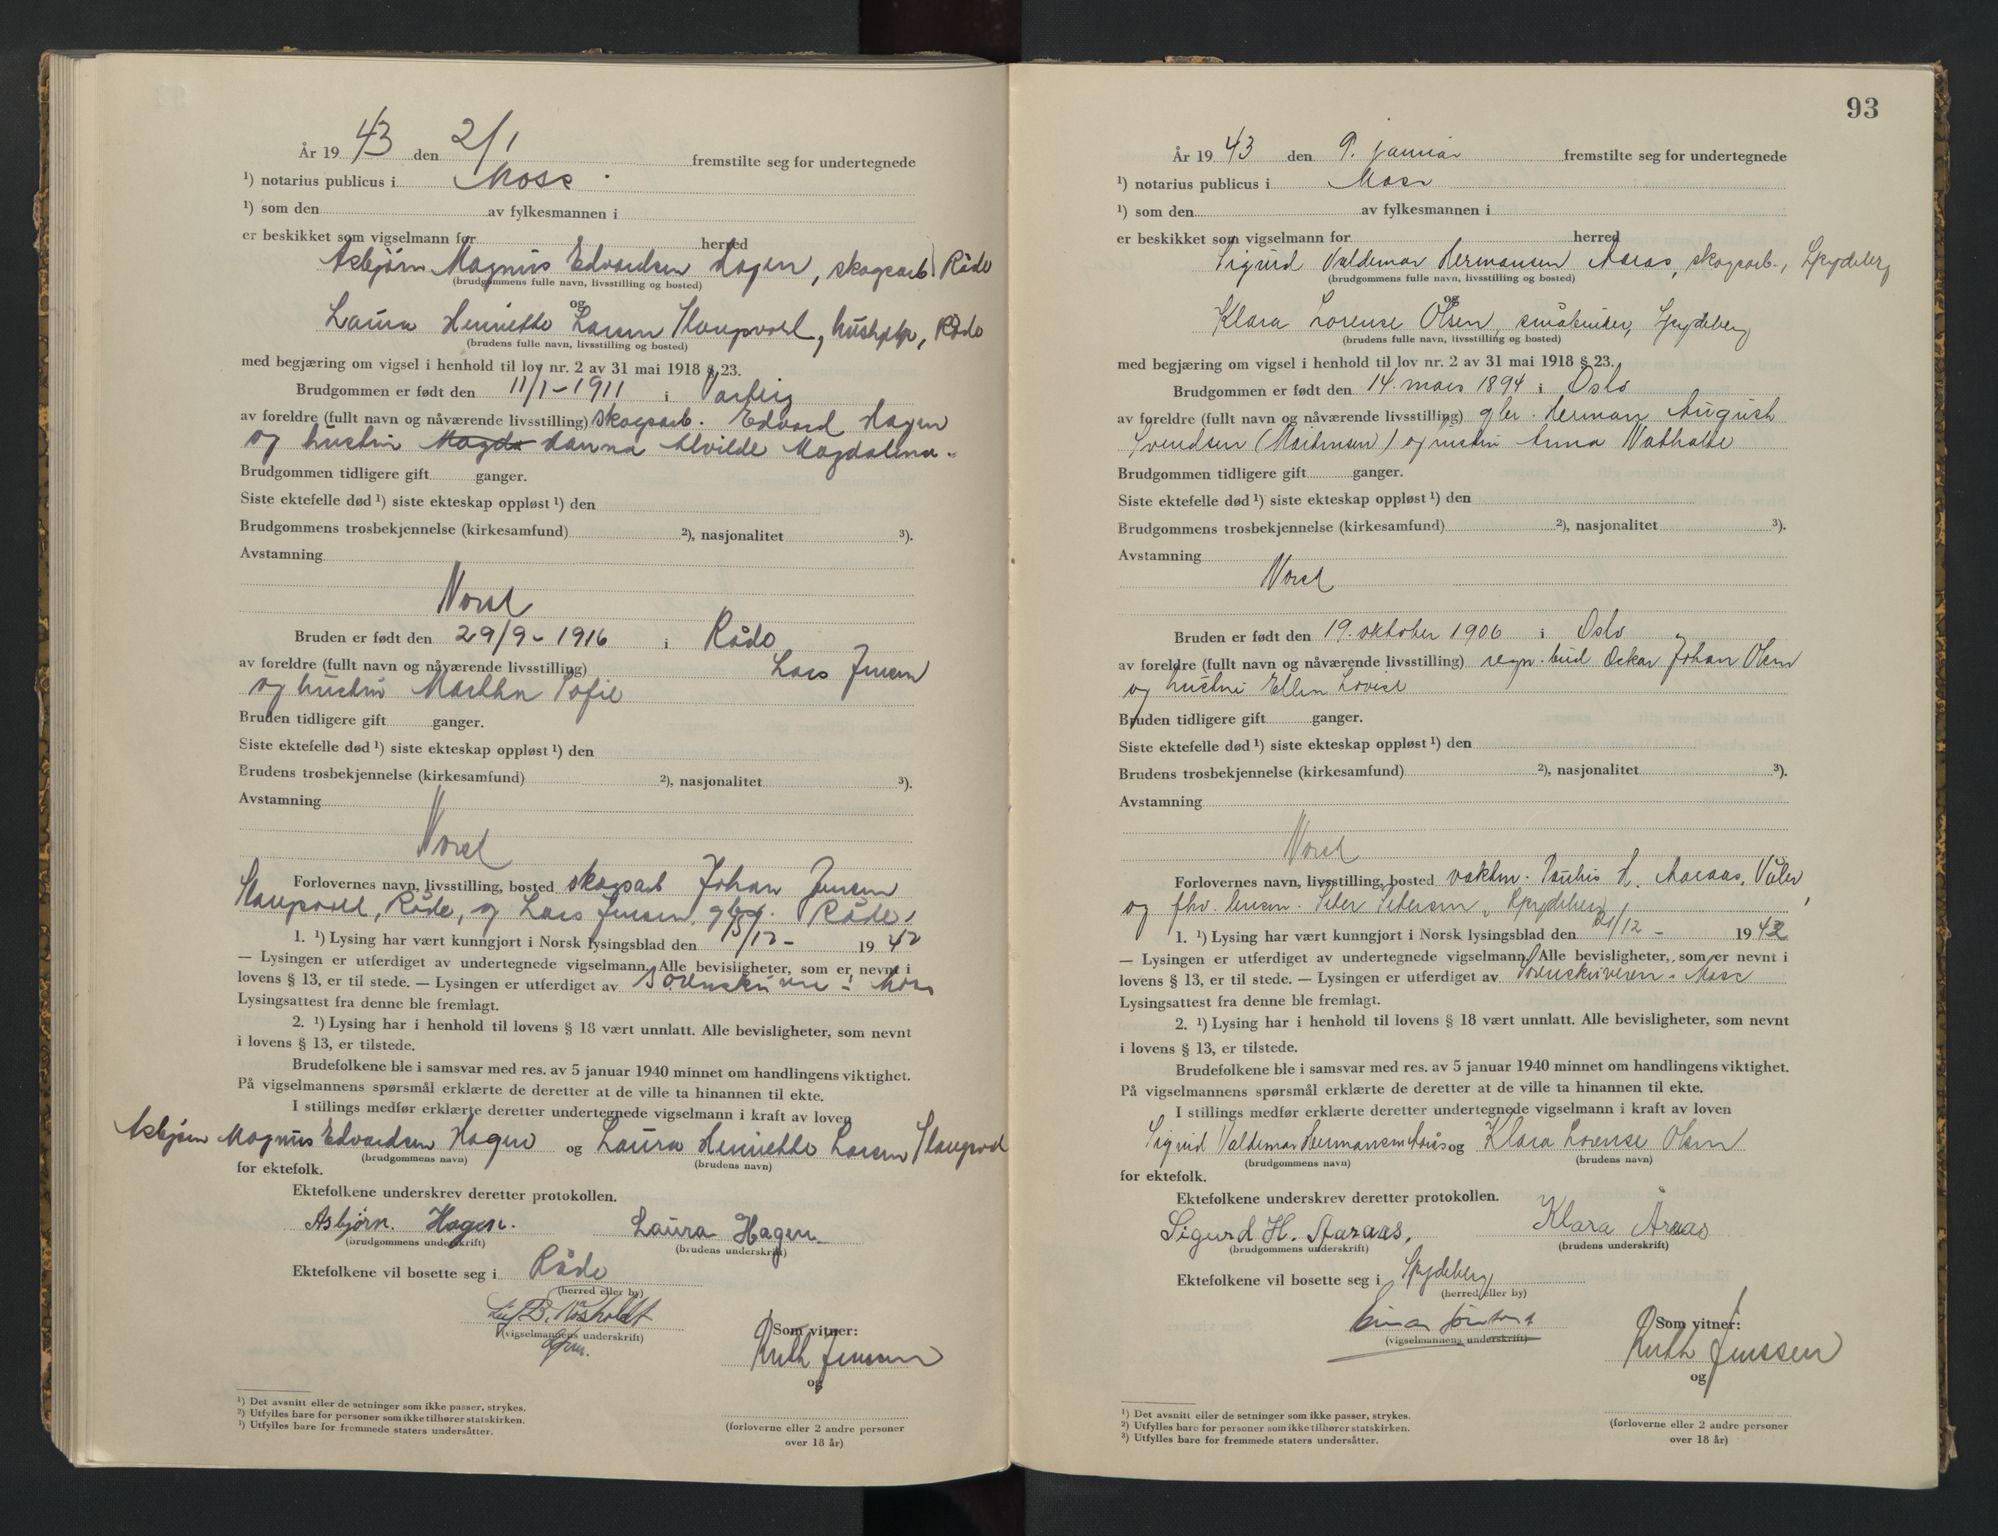 År 1943 den 2/1 fremstilte seg for undertegnede
¹) notarius publicus i Moss
¹) som den av fylkesmannen i
er beskikket som vigselmann for herred
Asbjørn Magnus Edvardsen Hagen, skogsarb. Råde
(brudgommens fulle navn, livsstilling og bosted)
og
Laura Henriette Larsen Slangsvoll, hushjelp, Råde
(brudens fulle navn, livsstilling og bosted)
med begjæring om vigsel i henhold til lov nr. 2 av 31 mai 1918 § 23.
Brudgommen er født den 11/1-1911 i Varteig
av foreldre (fullt navn og nåværende livsstilling) skogsarb. Edvard Hagen
og hustru Hanna Alvilde Magdalena.
Brudgommen tidligere gift ganger.
Siste ektefelle død ¹) siste ekteskap oppløst ¹) den
Brudgommens trosbekjennelse (kirkesamfund) ²), nasjonalitet ³).
Avstamning
Norsk
Bruden er født den 29/9-1916 i Råde
av foreldre (fullt navn og nåværende livsstilling) Lars Jensen
og hustru Martha Sofie
Bruden tidligere gift ganger.
Siste ektefelle død ¹) siste ekteskap oppløst ¹) den
Brudens trosbekjennelse (kirkesamfund) ²), nasjonalitet ³).
Avstamning
Norsk
Forlovernes navn, livsstilling, bosted skogsarb Johan Jensen
Råde, og Lars Jensen, Råde.
1. ¹) Lysing har vært kunngjort i Norsk lysingsblad den 15/12- 1942
— Lysingen er utferdiget av undertegnede vigselmann. Alle bevisligheter, som er nevnt i
lovens § 13, er til stede. — Lysingen er utferdiget av Sorenskriveren i Moss
Lysingsattest fra denne ble fremlagt.
2. ¹) Lysing har i henhold til lovens § 18 vært unnlatt. Alle bevisligheter, som nevnt
i lovens § 13, er tilstede.
Brudefolkene ble i samsvar med res. av 5 januar 1940 minnet om handlingens viktighet.
På vigselmannens spørsmål erklærte de deretter at de ville ta hinannen til ekte.
I stillings medfør erklærte deretter undertegnede vigselmann i kraft av loven
Asbjørn Magnus Edvardsen Hagen og Laura Henriette Larsen
(brudgommens navn) (brudens navn)
for ektefolk.
Ektefolkene underskrev deretter protokollen.
Asbjørn. Hagen. Laura Hagen.
(brudgommens underskrift) (brudens underskrift)
Ektefolkene vil bosette seg i Råde
(herred eller by)
(vigselmannens underskrift)
Som vitner:
Ruth Jenssen
og
¹) Det avsnitt eller de setninger som ikke passer, strykes.
²) Utfylles bare for personer som ikke tilhører statskirken.
³) Utfylles bare for fremmede staters undersåtter.
(forloverne eller 2 andre personer
over 18 år)
93
År 1943 den 9. januar fremstilte seg for undertegnede
¹) notarius publicus i Moss
¹) som den av fylkesmannen i
er beskikket som vigselmann for herred
Sigurd Valdemar Hermansen Aaraas, skogsarb., Spydeberg
(brudgommens fulle navn, livsstilling og bosted)
og
Klara Lorense Olsen, Spydeberg
(brudens fulle navn, livsstilling og bosted)
med begjæring om vigsel i henhold til lov nr. 2 av 31 mai 1918 § 23.
Brudgommen er født den 14. mars 1894 i Oslo
av foreldre (fullt navn og nåværende livsstilling) gbr. Herman August
Svendsen (Mortensen) og hustru Anna
Brudgommen tidligere gift ganger.
Siste ektefelle død ¹) siste ekteskap oppløst ¹) den
Brudgommens trosbekjennelse (kirkesamfund) ²), nasjonalitet ³).
Avstamning
Norsk
Bruden er født den 19. oktober 1906 i Oslo
av foreldre (fullt navn og nåværende livsstilling) regn. bud Oskar Johan Olsen
og hustru Ellen Lovise
Bruden tidligere gift ganger.
Siste ektefelle død ¹) siste ekteskap oppløst ¹) den
Brudens trosbekjennelse (kirkesamfund) ²), nasjonalitet ³).
Avstamning
Norsk
Forlovernes navn, livsstilling, bosted vaktm. H. Aaraas, Våler
og fhv. Peter Pedersen, Spydeberg
1. ¹) Lysing har vært kunngjort i Norsk lysingsblad den 21/12 - 1942
— Lysingen er utferdiget av undertegnede vigselmann. Alle bevisligheter, som er nevnt i
lovens § 13, er til stede. — Lysingen er utferdiget av Sorenskriveren i Moss
Lysingsattest fra denne ble fremlagt.
2. ¹) Lysing har i henhold til lovens § 18 vært unnlatt. Alle bevisligheter, som nevnt
i lovens § 13, er tilstede.
Brudefolkene ble i samsvar med res. av 5 januar 1940 minnet om handlingens viktighet.
På vigselmannens spørsmål erklærte de deretter at de ville ta hinannen til ekte.
I stillings medfør erklærte deretter undertegnede vigselmann i kraft av loven
Sigurd Valdemar Hermansen Aarås og Klara Lorense Olsen
(brudgommens navn) (brudens navn)
for ektefolk.
Ektefolkene underskrev deretter protokollen.
Sigurd H. Aaraas. Klara Åraas
(brudgommens underskrift) (brudens underskrift)
Ektefolkene vil bosette seg i Spydeberg
(herred eller by)
(vigselmannens underskrift)
Som vitner:
Ruth Jenssen
og
¹) Det avsnitt eller de setninger som ikke passer, strykes.
²) Utfylles bare for personer som ikke tilhører statskirken.
³) Utfylles bare for fremmede staters undersåtter.
(forloverne eller 2 andre personer
over 18 år)